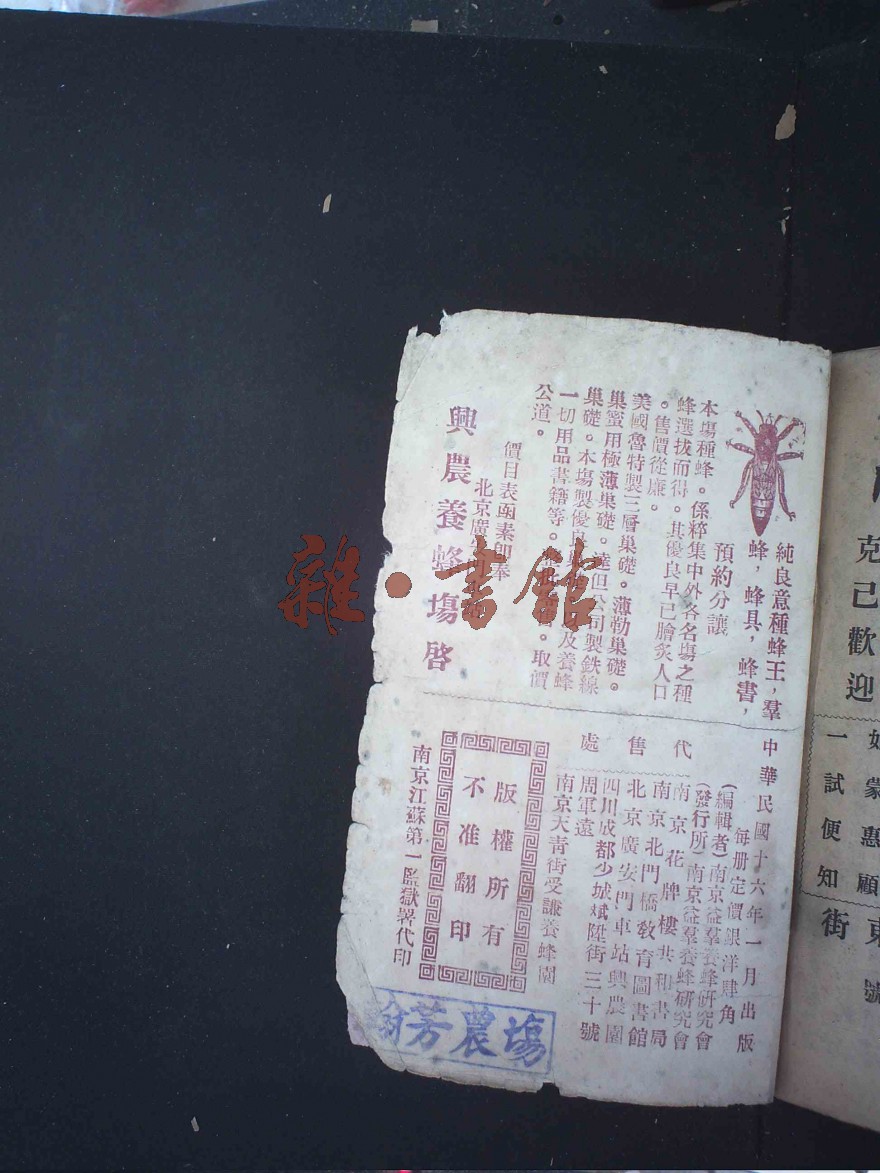 純良意種蜂王，羣
蜂，蜂具，蜂書，
預約分讓
本塲種蜂。係粹集中外各名塲之種
蜂選拔而得。其優良早已膾炙人口
。售價從廉。
美國魯特製三層巢礎。薄勒巢礎。
巢蜜用極薄巢礎。達但公司製鉄線
巢礎。本塲製優良
及養蜂
一切用品書籍等。
取價
公道。
價目表函素即奉
北京廣
興農養蜂塲啓
中華民國十六年一月出版
每册定價銀洋肆角
(編輯者)南京益羣養蜂研究會
(發行所)南京益羣養蜂研究會
代售處
南京花牌樓共和書局
南京北門橋教育圖書館
北京廣安門車站興農園
四川成都少城斌陞街三十號
周軍遠
南京天青街受謙養蜂園
版權所有
不准翻印
南京江蘇第一監獄署代印
芳農塲
雜·書館
克己歡迎
蒙惠顧
一試便知
街
號